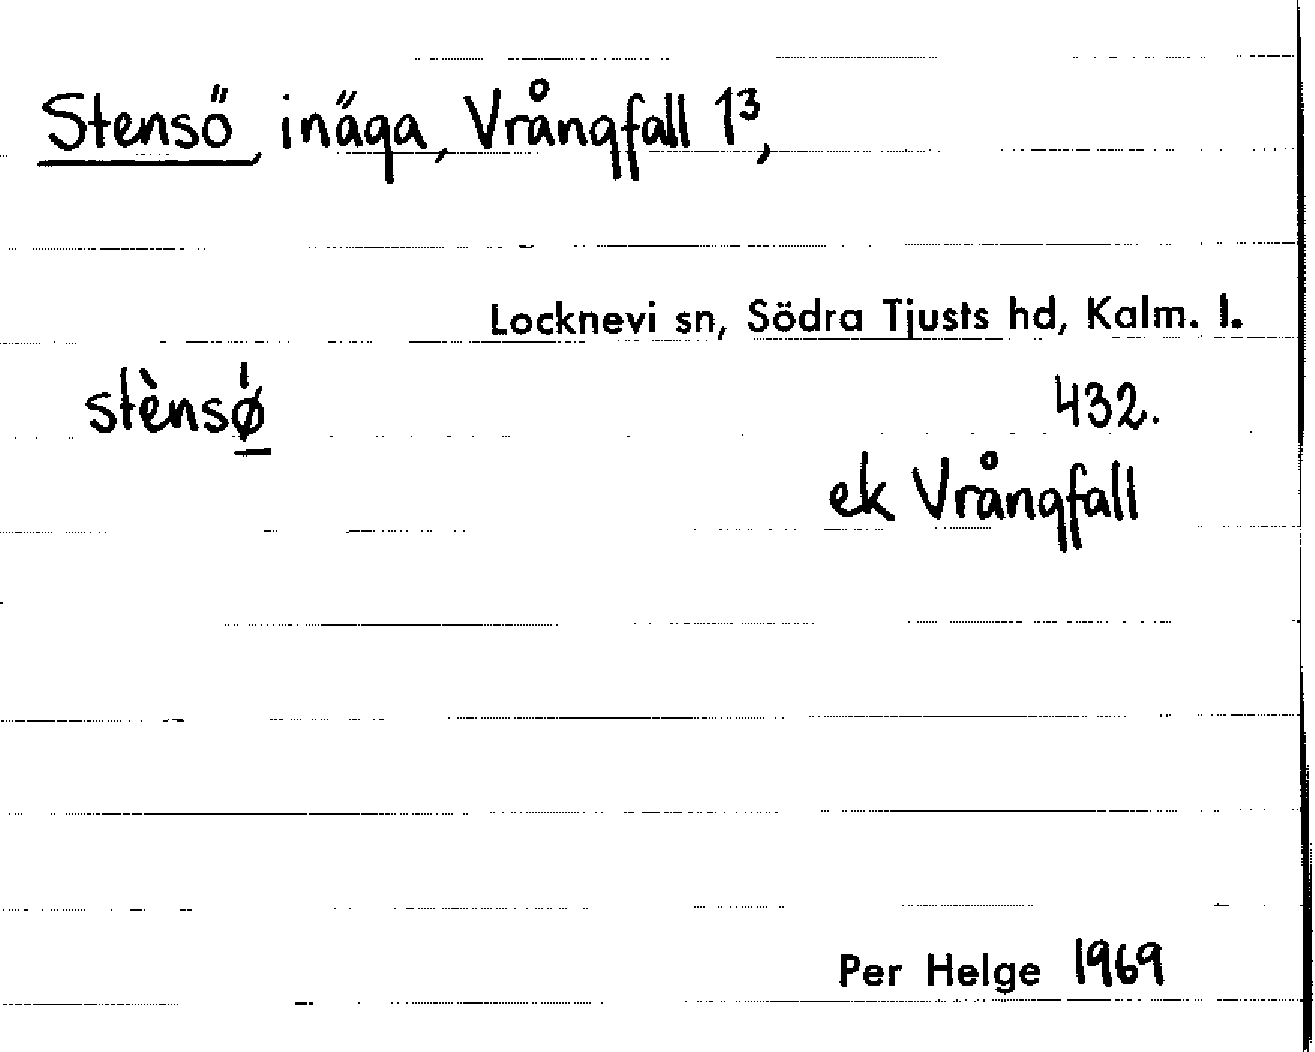 Stensö, inäga, Vrångfall 1³,
Locknevi sn, Södra Tjusts hd, Kalm. l.
stènsø̱̍ 432.
ek Vrångfall
Per Helge 1969